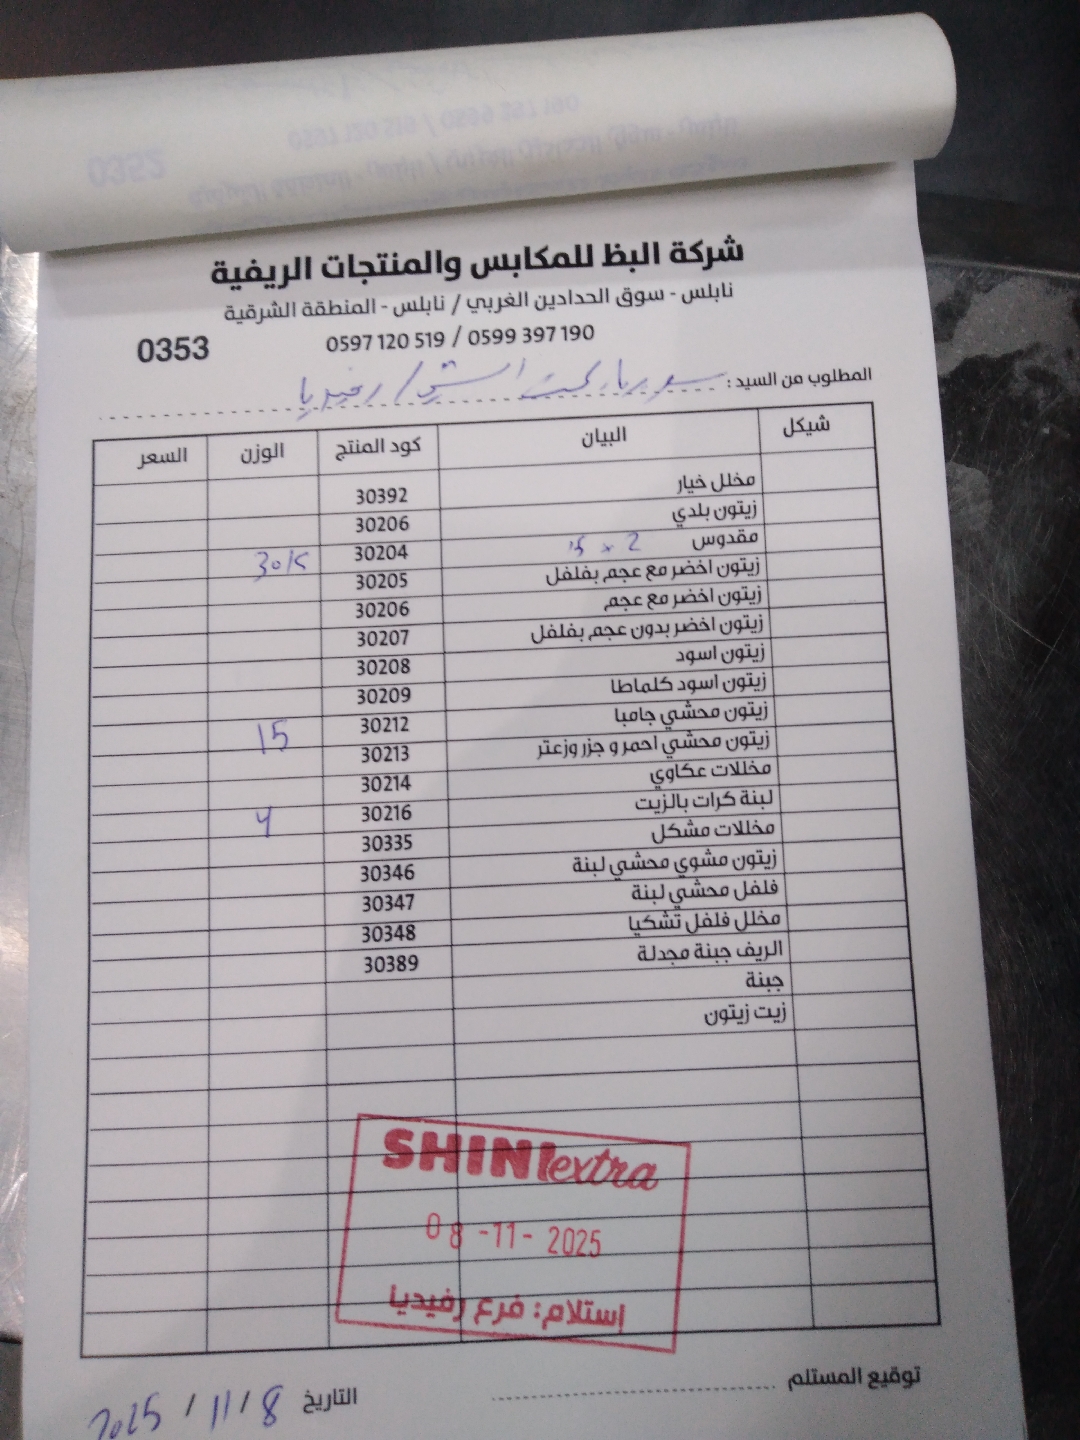 شركة البظ للمكابس والمنتجات الريفية
نابلس - سوق الحدادين الغربي / نابلس - المنطقة الشرقية
0353
0597 120 519 / 0599 397 190
المطلوب من السيد : سوبرماركت الشني / رفيديا
شيكل البيان كود المنتج الوزن السعر
مخلل خيار 30392
زيتون بلدي 30206
مقدوس 2 × 15 30204 30K
زيتون اخضر مع عجم بفلفل 30205
زيتون اخضر مع عجم 30206
زيتون اخضر بدون عجم بفلفل 30207
زيتون اسود 30208
زيتون اسود كلماطا 30209
زيتون محشي جامبا 30212 15
زيتون محشي احمر و جزر وزعتر 30213
مخللات عكاوي 30214
لبنة كرات بالزيت 30216 4
مخللات مشكل 30335
زيتون مشوي محشي لبنة 30346
فلفل محشي لبنة 30347
مخلل فلفل تشكيا 30348
الريف جبنة مجدلة 30389
جبنة
زيت زيتون
SHINI extra
08 -11- 2025
إستلام: فرع رفيديا
توقيع المستلم
التاريخ 8 / 11 / 2025